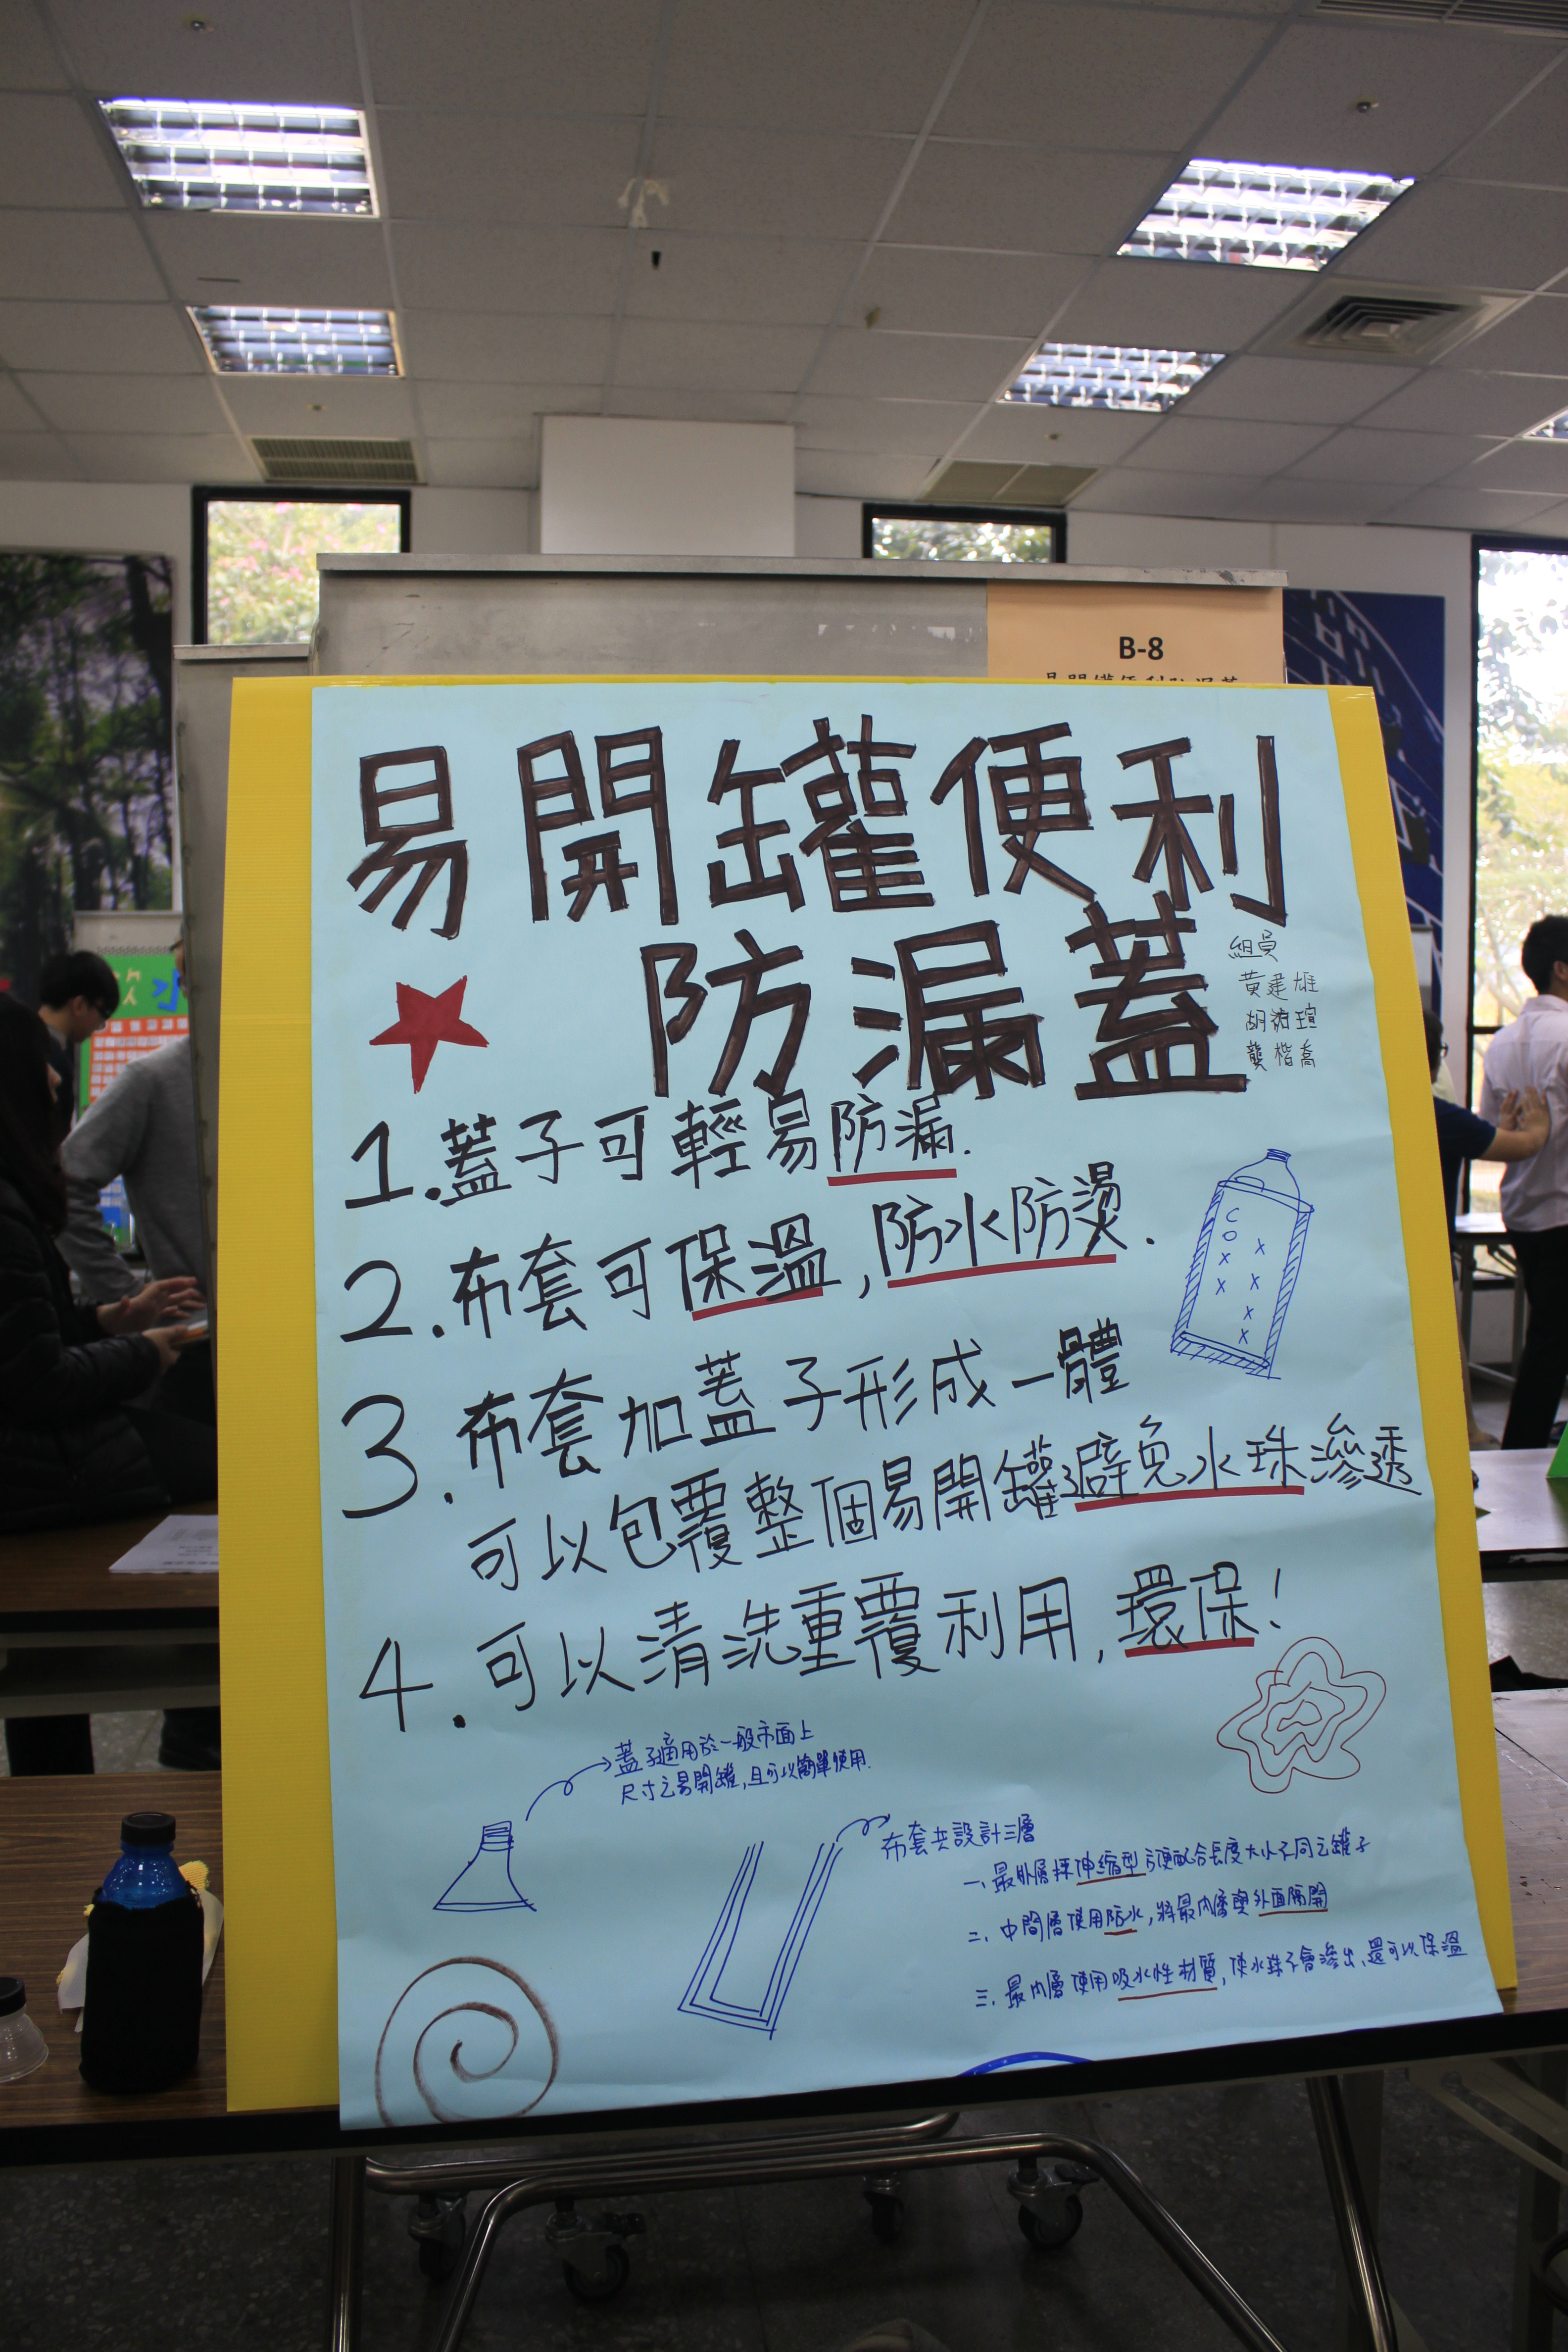 B-8
易開罐便利防漏蓋
易開罐便利
防漏蓋
組員
黃建雄
胡瑄
龔楷喬
1.蓋子可輕易防漏.
2.布套可保溫,防水防燙.
3.布套加蓋子形成一體
可以包覆整個易開罐避免水珠滲透
4.可以清洗重覆利用,環保!
COXX
XXXX
蓋子適用於一般市面上
尺寸之易開罐,且可以簡單使用.
布套共設計三層
一、最外層採伸縮型方便配合長度大小不同之罐子
二、中間層使用防水,將最內層與外面隔開
三、最內層使用吸水性材質,使水珠不會滲出、還可以保溫